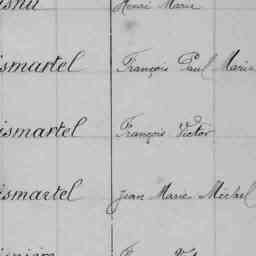 Henri Marie
ismartel François Paul Marie
ismartel François Victor
ismartel Jean Marie Michel